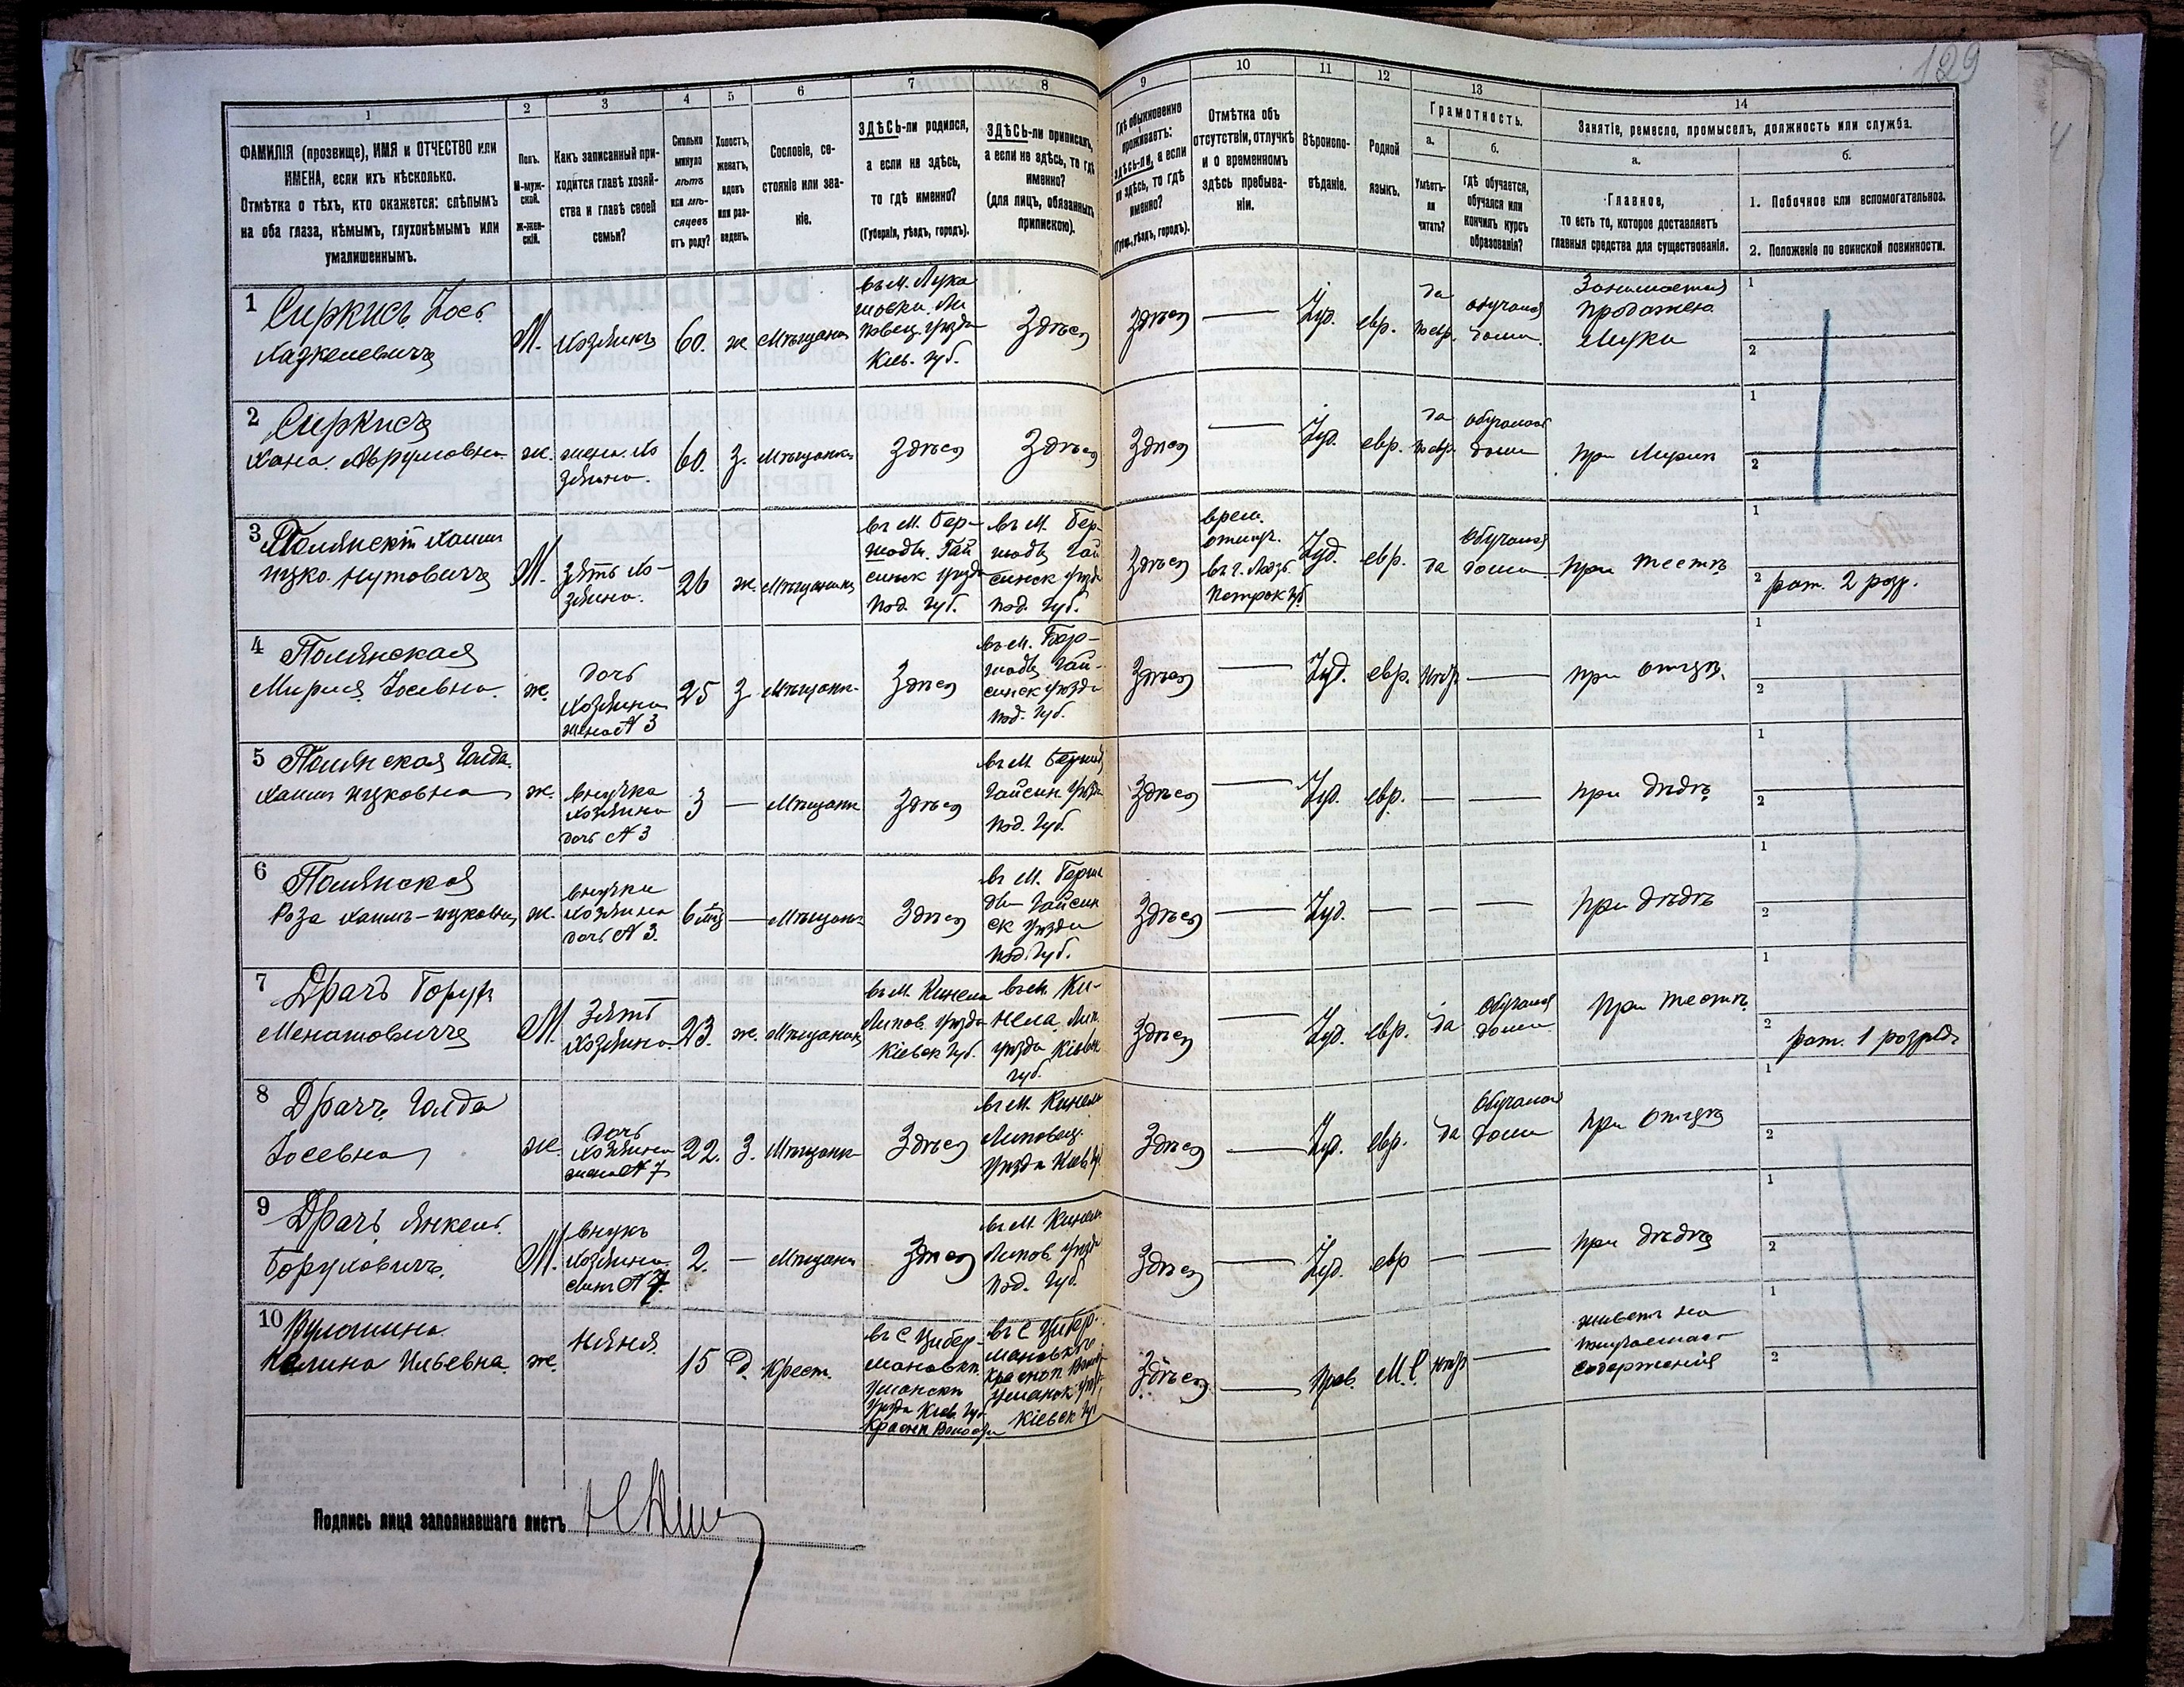 129
1 2 3 4 5 6 7 8 9 10 11 12 13 14
ФАМИЛІЯ (прозвище), ИМЯ и ОТЧЕСТВО или
ИМЕНА, если ихъ нѣсколько.
Отмѣтка о тѣхъ, кто окажется: слѣпымъ
на оба глаза, нѣмымъ, глухонѣмымъ или
умалишеннымъ.
Полъ.
М-муж-
ской.
Ж-жен-
скій.
Какъ записанный при-
ходится главѣ хозяй-
ства и главѣ своей
семьи?
Сколько
минуло
лѣтъ
или мѣ-
сяцевъ
отъ роду?
Холостъ,
женатъ,
вдовъ
или раз-
веденъ.
Сословіе, со-
стояніе или зва-
ніе.
ЗДѢСЬ-ли родился,
а если не здѣсь,
то гдѣ именно?
(Губернія, уѣздъ, городъ).
ЗДѢСЬ-ли приписанъ,
а если не здѣсь, то гдѣ
именно?
(для лицъ, обязанныхъ
припискою).
Гдѣ обыкновенно
проживаетъ:
здѣсь-ли, а если
не здѣсь, то гдѣ
именно?
(Губ., уѣздъ, городъ).
Отмѣтка объ
отсутствіи, отлучкѣ
и о временномъ
здѣсь пребыва-
ніи.
Вѣроиспо-
вѣданіе.
Родной
языкъ.
Грамотность.
а.
Умѣетъ-
ли
читать?
б.
гдѣ обучается,
обучался или
кончилъ курсъ
образованія?
Занятіе, ремесло, промыселъ, должность или служба.
а.
Главное,
то есть то, которое доставляетъ
главныя средства для существованія.
б.
1. Побочное или вспомогательное.
2. Положеніе по воинской повинности.
1 Сиркисъ Іось
Хазкелевичъ
М.
хозяинъ
60.
ж
Мѣщанинъ
въ м. Лука
шовки Ли
повец. уѣзда
Кіев. губ.
Здѣсь
Здѣсь
—
Іуд.
евр.
да
по евр.
обучался
дома.
Занимается
продажею
Муки
1
2
2 Сиркисъ
Хана Аврумовна
ж.
жена хо
зяина.
60.
З.
Мѣщанка
Здѣсь
Здѣсь
Здѣсь
—
Іуд.
евр.
да
по евр.
обучалась
дома
при Мужѣ
1
2
3 Полянскій Хаимъ
ицко Нутовичъ
М.
зять хо-
зяина.
26
ж.
Мѣщанинъ
въ м. Бер-
шадь Гай
синск уѣзда
Под. губ.
въ м. Бер-
шадь Гай
синск уѣзда
Под. губ.
Здѣсь
врем.
отлуч.
въ г. Лодзь
Петрок. губ
Іуд.
евр.
да
Обучался
дома
При тестѣ
1
2 рат. 2 разр.
4 Полянская
Мирия Іосевна.
ж.
дочь
хозяина
жена № 3
25
З
Мѣщанка
Здѣсь
въ м. Бер-
шадь Гай-
синск уѣзда
Под. губ.
Здѣсь
—
Іуд.
евр.
нѣтъ
—
при отцѣ
1
2
5 Полянская Голда
Хаимъ ицковна
ж.
внучка
хозяина
дочь № 3
3
—
Мѣщанка
Здѣсь
въ м. Бершадь
Гайсин. уѣзда
Под. губ.
Здѣсь
—
Іуд.
евр.
—
—
при дѣдѣ
1
2
6 Полянская
Роза Хаимъ-ицковна
ж.
внучка
хозяина
дочь № 3.
6 мѣс
—
Мѣщанка
Здѣсь
въ м. Берша
дь Гайсин
ск уѣзда
Под. губ.
Здѣсь
—
Іуд.
—
—
—
При дѣдѣ
1
2
7 Драчъ Борухъ
Менашовичъ
М.
Зять
хозяина.
23.
ж.
Мѣщанинъ
въ м. Кинела
Липов. уѣзда
Кіевск губ.
въ м. Ки-
нела Лип.
уѣзда Кіевск
губ.
Здѣсь
—
Іуд.
евр.
да
Обучался
дома
При тестѣ
1
2 рат. 1 разряд.
8 Драчъ Голда
Іосевна
ж.
дочь
хозяина
жена № 7
22.
З.
Мѣщанка
Здѣсь
въ м. Кинела
Липовец.
уѣзда Кіев. губ
Здѣсь
—
Іуд.
евр.
да
Обучалась
дома
При отцѣ
1
2
9 Драчъ Янкель
Боруховичъ.
М.
внукъ
хозяина.
сынъ № 7.
2.
—
Мѣщанин
Здѣсь
въ м. Кинела
Липов. уѣзда
Под. губ.
Здѣсь
—
Іуд.
евр
—
—
при дѣдѣ
1
2
10
Ильевна.
ж.
няня
15
Д.
Крест.
въ с Цибер-
мановки
Уманск
уѣзда Кіев. губ
Красноп Волости
въ с Цибер-
мановкѣ
Красноп. Волос
Уманск уѣзда
Кіевск губ
Здѣсь
—
Прав.
М. Р.
нѣтъ
—
живетъ на
содержанія
1
2
Подпись лица заполнявшаго листъ